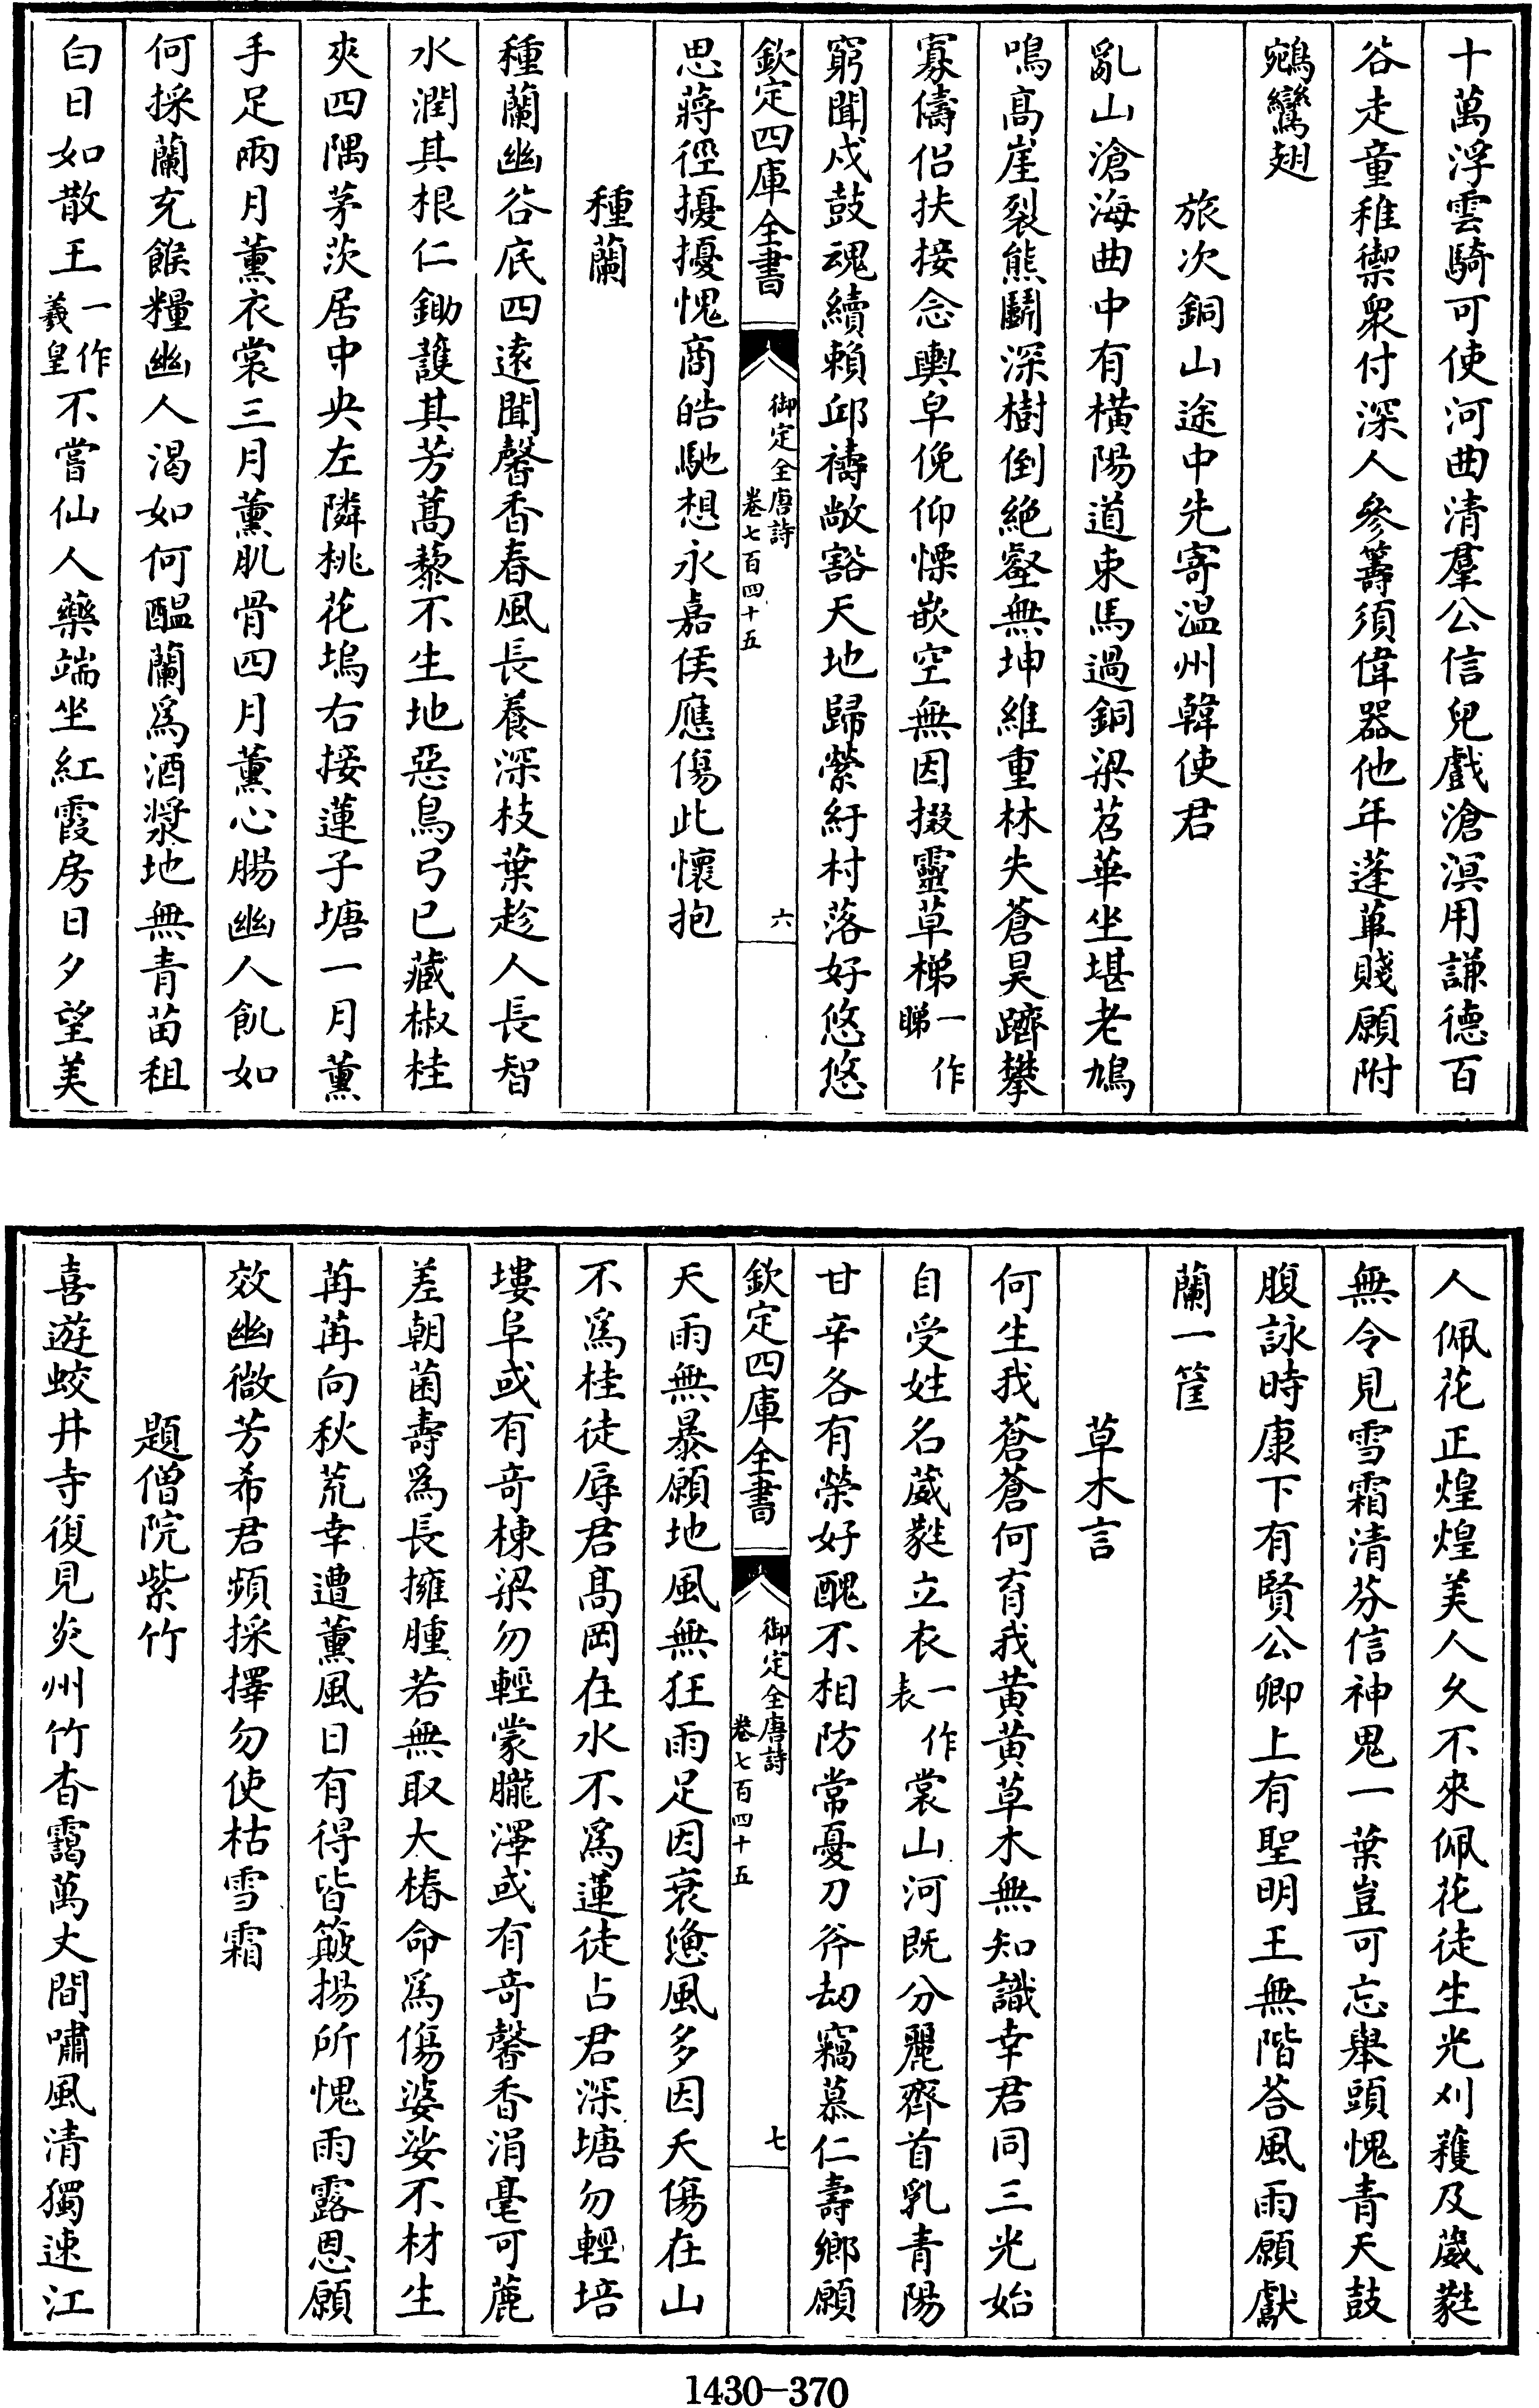 十萬浮雲騎可使河曲清羣公信兒戲滄溟用謙德百
谷走童稚禦衆付深人參籌須偉器他年蓬蓽賤願附
鵷鸞翅
旅次銅山途中先寄温州韓使君
亂山滄海曲中有橫陽道束馬過銅梁苕華坐堪老鳩
鳴髙崖裂熊鬭深樹倒絶壑無坤維重林失蒼昊躋攀
寡儔侣扶接念輿皁俛仰慄嵌空無因掇靈草梯一作睇
窮聞戍鼓魂續賴邱禱敞豁天地歸縈紆村落好悠悠
欽定四庫全書
御定全唐詩
卷七百四十五
六
思蔣徑擾擾愧商皓馳想永嘉侯應傷此懷抱
種蘭
種蘭幽谷底四逺聞馨香春風長養深枝葉趁人長智
水潤其根仁鋤護其芳蒿藜不生地惡鳥弓已藏椒桂
夾四隅茅茨居中央左隣桃花塢右接蓮子塘一月薰
手足兩月薫衣裳三月薫肌骨四月薫心腸幽人飢如
何採蘭充餱糧幽人渇如何醖蘭爲酒漿地無青苗租
白日如散王一作羲皇不嘗仙人藥端坐紅霞房日夕望美
人佩花正煌煌美人久不來佩花徒生光刈穫及葳蕤
無令見雪霜清芬信神鬼一葉豈可忘舉頭愧青天鼓
腹詠時康下有賢公卿上有聖明王無階荅風雨願獻
蘭一筐
草木言
何生我蒼蒼何育我黃黃草木無知識幸君同三光始
自受姓名葳蕤立衣一作表裳山河既分麗齊首乳青陽
甘辛各有榮好醜不相防常憂刀斧刧竊慕仁壽鄉願
欽定四庫全書
御定全唐詩
卷七百四十五
七
天雨無暴願地風無狂雨足因衰憊風多因夭傷在山
不爲桂徒辱君髙岡在水不爲蓮徒占君深塘勿輕培
塿阜或有奇棟梁勿輕蒙朧澤或有奇馨香涓毫可麄
差朝菌壽爲長擁腫若無取大椿命爲傷婆娑不材生
苒苒向秋荒幸遭薰風日有得皆簸揚所愧雨露恩願
效幽微芳希君頻採擇勿使枯雪霜
題僧院紫竹
喜遊蛟井寺復見炎州竹杳靄萬丈間嘯風清獨速江
1430—370